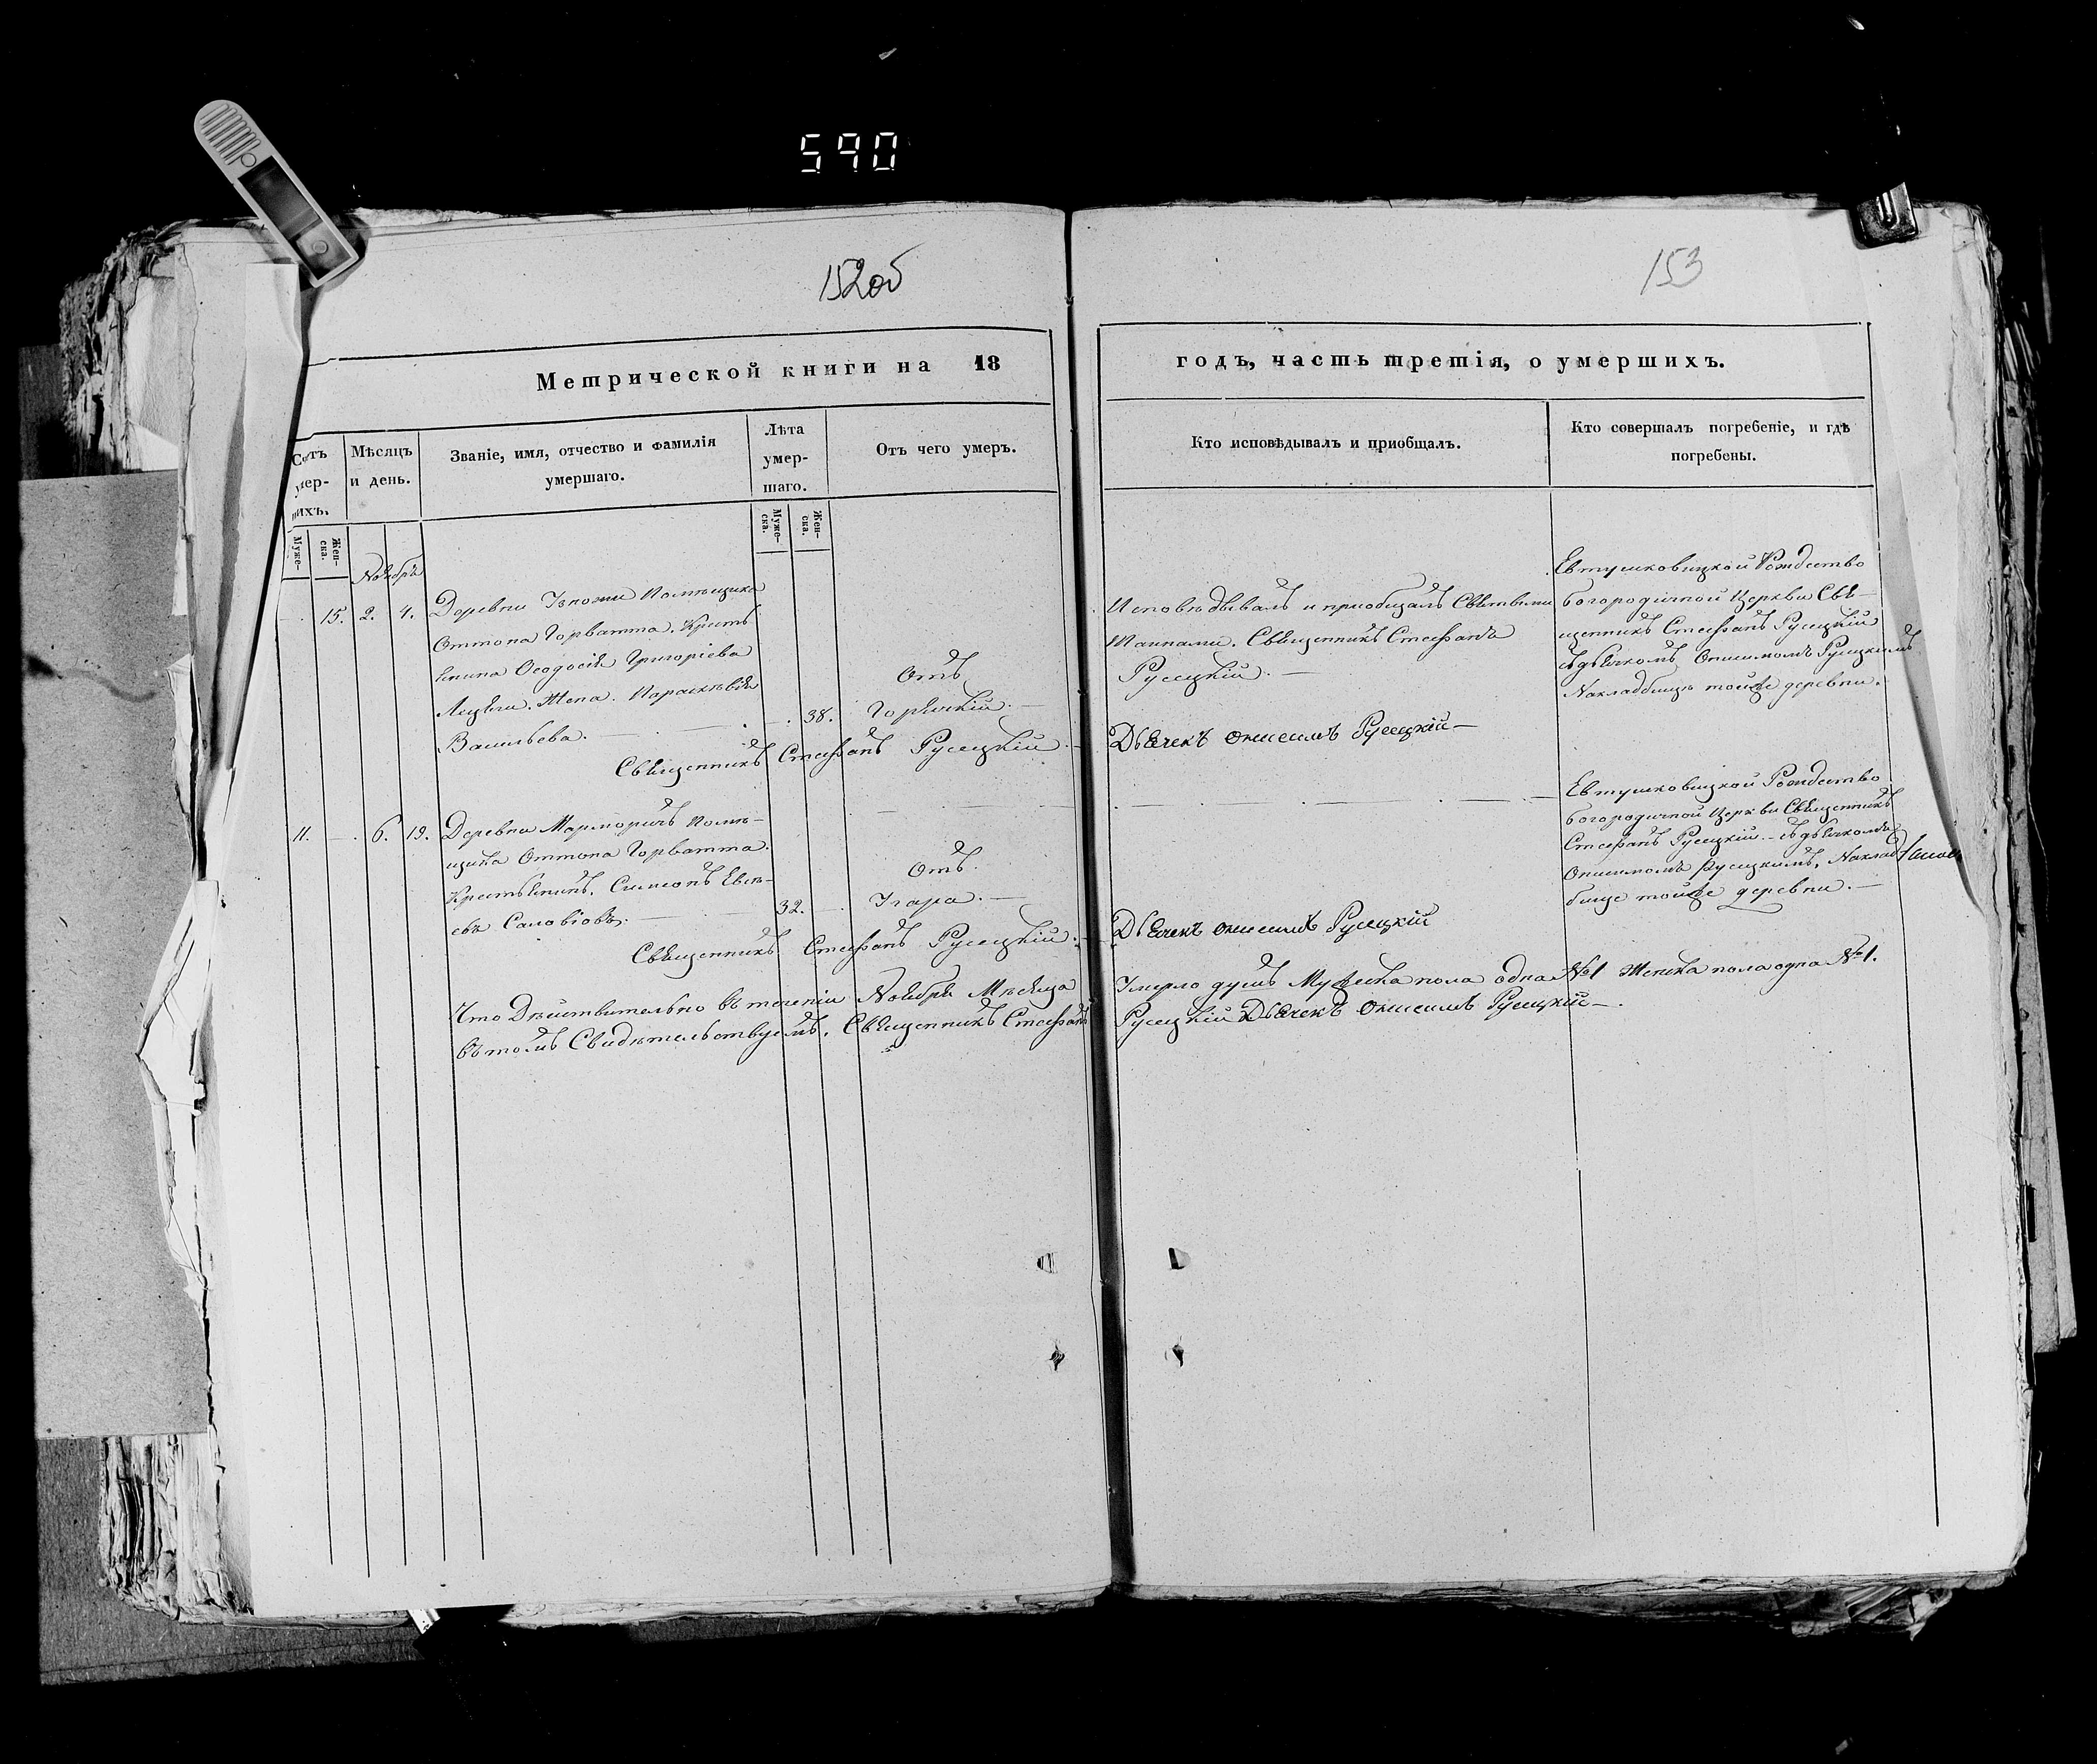 590
152об
153
Метрической книги на 18
годъ, часть третія, о умершихъ.
Счетъ умер- шихъ.
Мѣсяцъ и день.
Званіе, имя, отчество и фамилія умершаго.
Лѣта умер- шаго.
Отъ чего умеръ.
Кто исповѣдывалъ и приобщалъ.
Кто совершалъ погребеніе, и гдѣ погребены.
Муже-
Жен- ска.
Муже- ска.
Жен- ска.
Ноябрь
15. 2. 4. Деревни помѣщика
Оттона Горватта. Кресть
янина Ѳеодосія Григоріева
Жена. Параскѣвія
Васильева. 38.
Отъ
Горячкій.
Священникъ Стефанъ Русецкій.
Исповѣдывалъ и приобщалъ Святыми
Тайнами. Священникъ Стефанъ
Русецкій.
Дьячекъ Онисимъ Русецкій
Евтушковицкой Рождество
богородичной Церкви Свя-
щенникъ Стефанъ Русецкій
съ дьячкомъ Онисимомъ Русецкимъ
На кладбищѣ тойже деревни.
11. 6. 19. Деревни Марморичъ помѣ-
щика Оттона Горватта.
Крестьянинъ. Симеонъ Евсѣ-
евъ Саловіовъ. 32.
Отъ
Угара.
Священникъ Стефанъ Русецкій.
Дьячекъ Онисимъ Русецкій
Евтушковицкой Рождество
богородичной Церкви Священникъ
Стефанъ Русецкій съ дьячкомъ
Онисимомъ Русецкимъ, На клад
бище тойже деревни.
Что Дѣйствительно въ теченіи Ноября Мѣсяца Умерло душъ Мужеска пола одна №1 Женска пола одна №1.
Въ томъ Свидѣтельствуемъ. Священникъ Стефанъ Русецкій Дьячекъ Онисимъ Русецкій